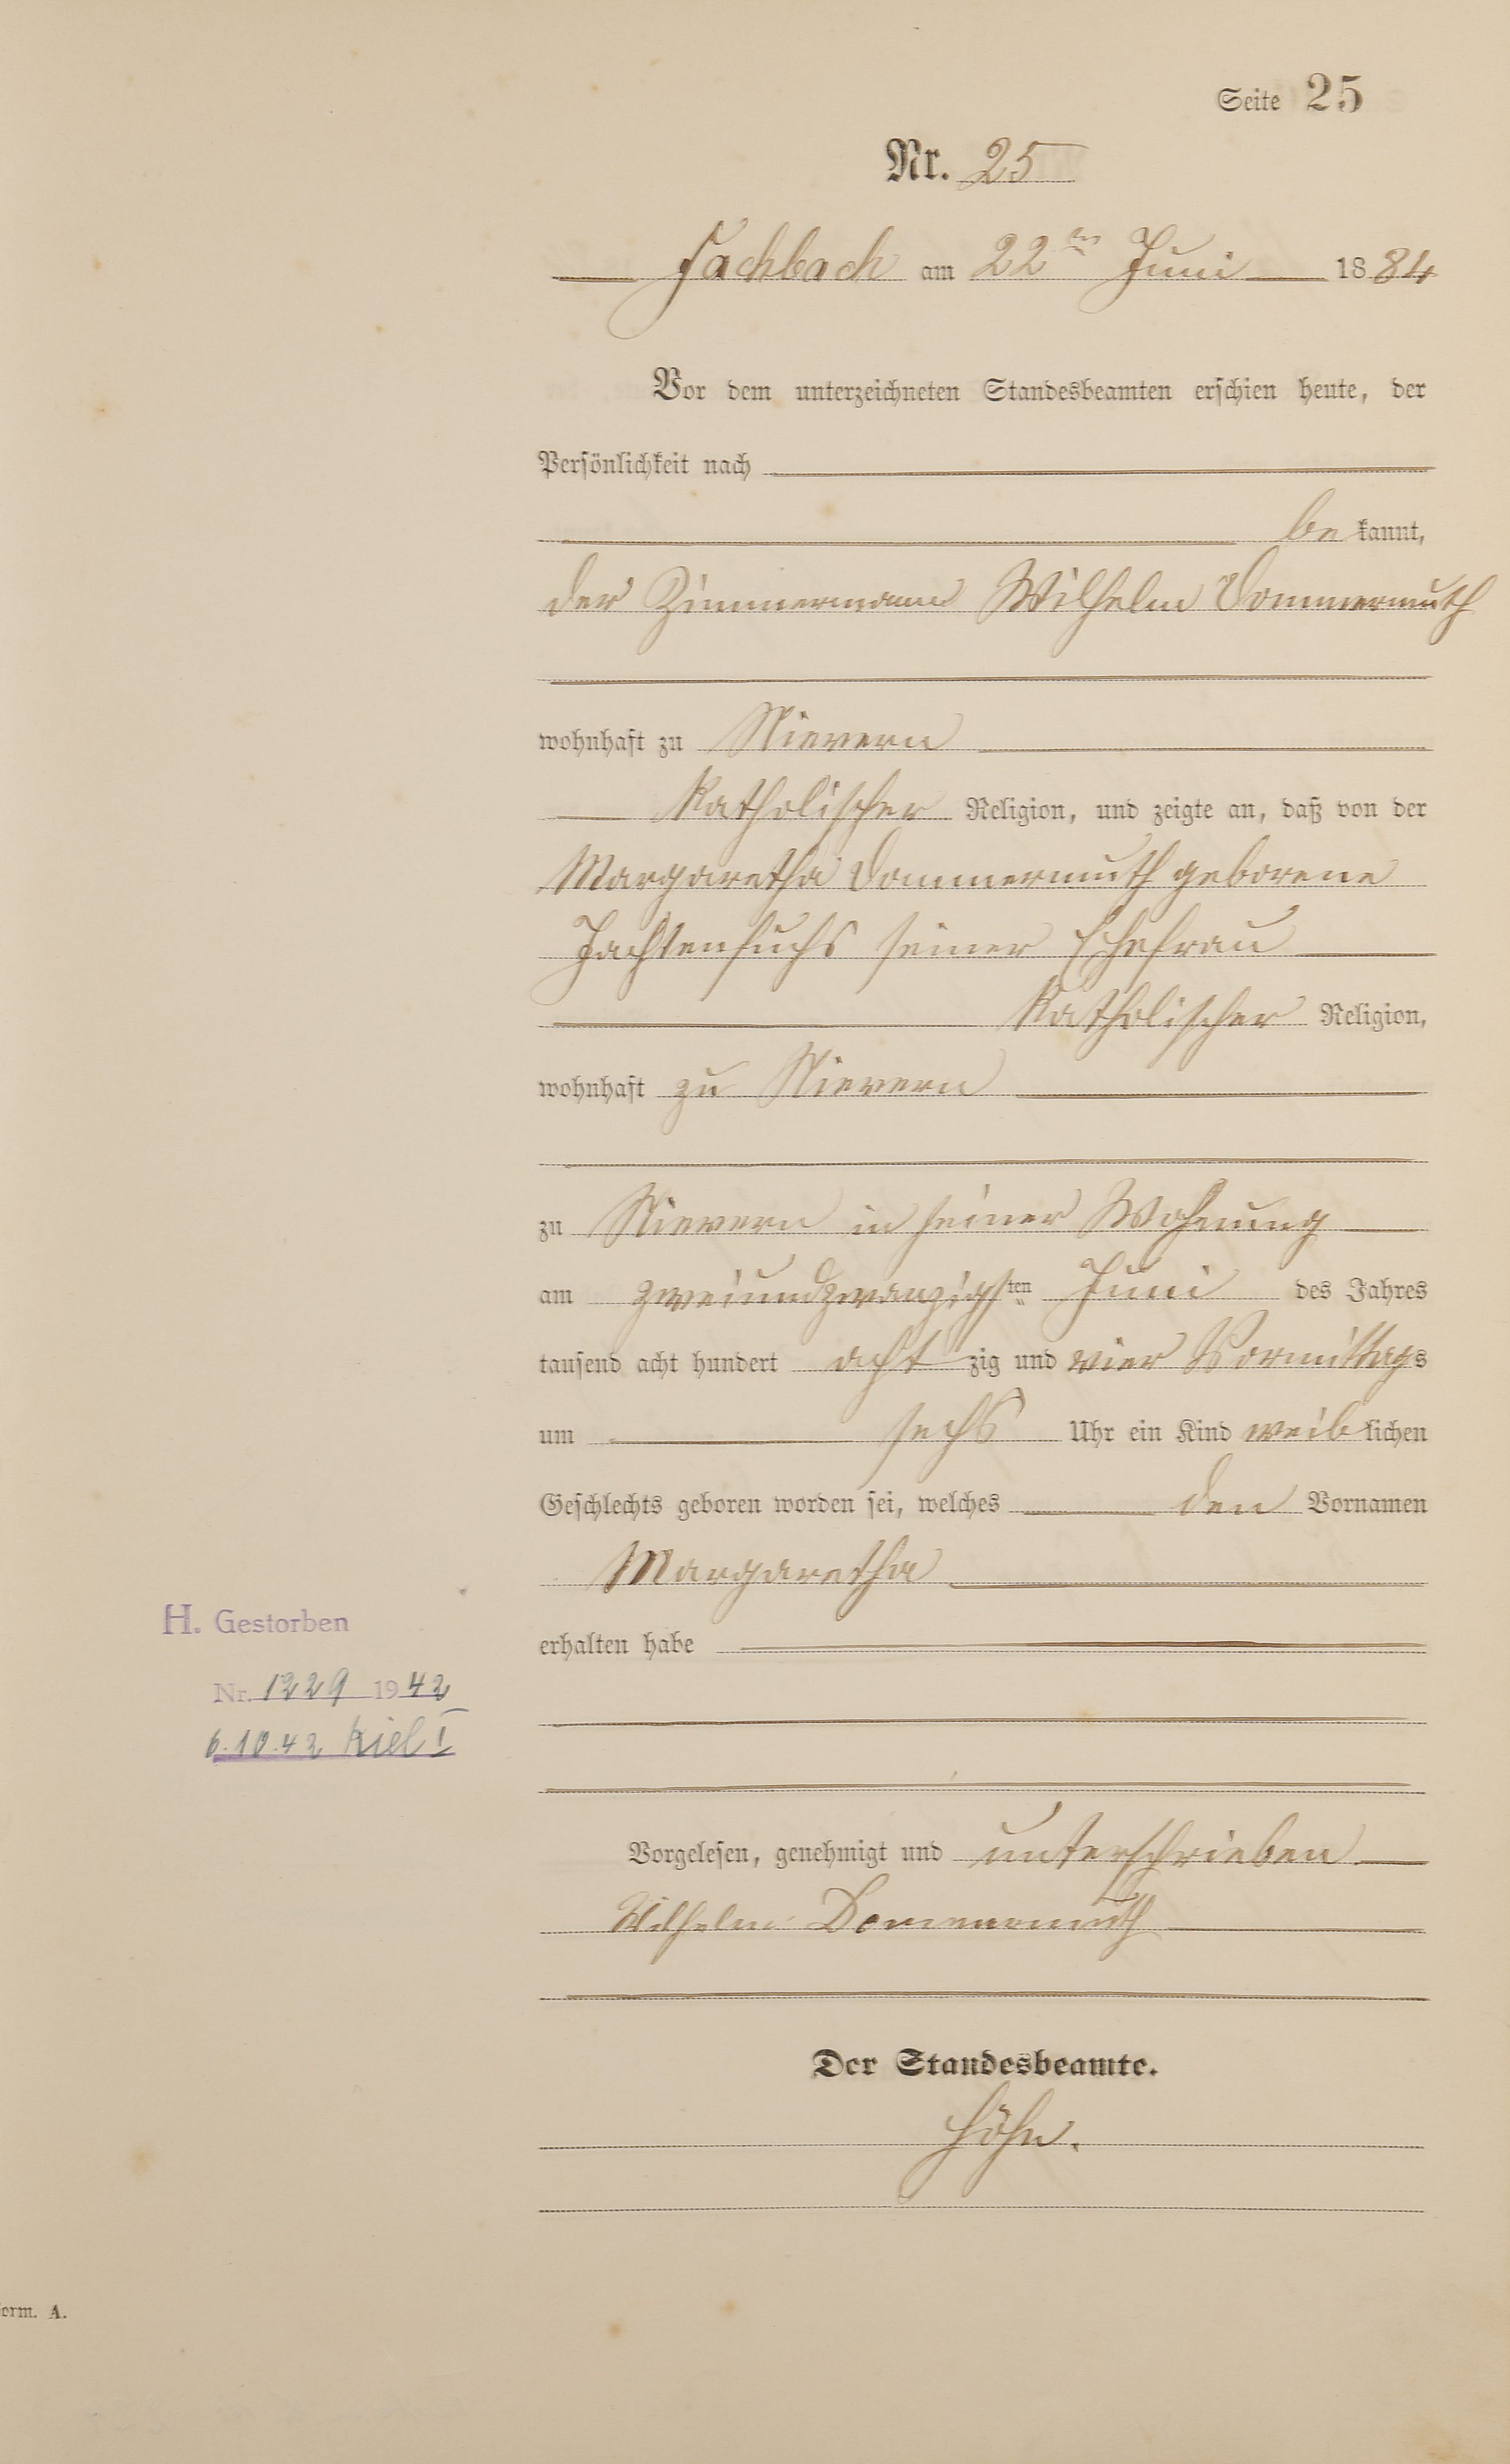 Seite 25
Nr. 25
Fachbach am 22ten Juni 1884
Vor dem unterzeichneten Standesbeamten erschien heute, der
Persönlichkeit nach
be kannt,
der Zimmermann Wilhelm Dommermuth
wohnhaft zu Nievern
katholischer Religion, und zeigte an, daß von der
Margaretha Dommermuth geborene
Jachtenfuchs seiner Ehefrau
katholischer Religion,
wohnhaft zu Nievern
zu Nievern in seiner Wohnung
am zweiundzwanzigsten Juni des Jahres
tausend acht hundert acht zig und vier Vormittags
um sechs Uhr ein Kind weib lichen
Geschlechts geboren worden sei, welches den Vornamen
Margaretha
H. Gestorben
erhalten habe
Nr. 1229 1942
6.10.42 Kiel I
Vorgelesen, genehmigt und unterschrieben
Wilhelm Dommermuth
Der Standesbeamte.
Höhn.
orm. A.